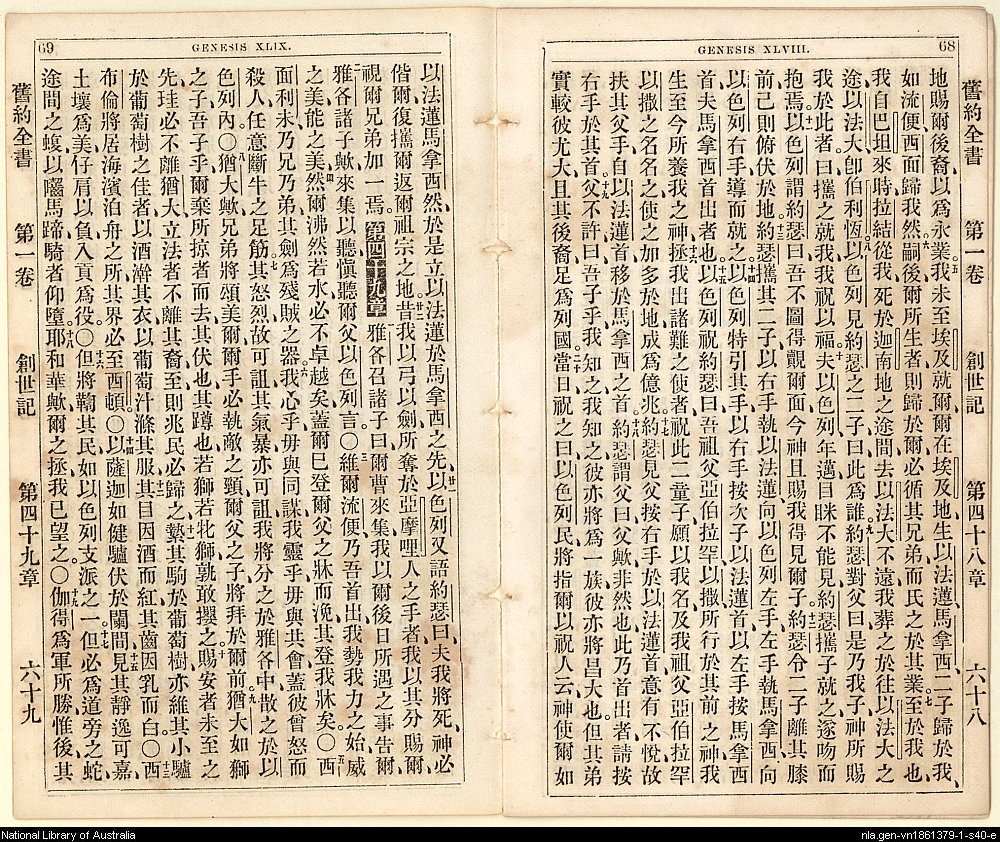 68
GENESIS XLVIII.
舊約全書 第一卷 創世記 第四十八章 六十八
地賜爾後裔、以爲永業。五我未至埃及就爾、爾在埃及地生以法蓮馬拿西二子歸於我、
如流便西面歸我然。六嗣後爾所生者則歸於爾、必循其兄弟而氏之於其業。七至於我也、
我自巴坦來時、拉結從我死於迦南地之途間、去以法大不遠、我葬之於往以法大之
途、以法大卽伯利恆。八以色列見約瑟之二子曰、此爲誰。九約瑟對父曰、是乃我子、神所賜
我於此者、曰、攜之就我、我祝以福。十夫以色列年邁目眯不能見、約瑟攜子就之、遂吻而
抱焉。十一以色列謂約瑟曰、吾不圖得覿爾面、今神且賜我得見爾子。十二約瑟令二子離其膝
前、己則俯伏於地。十三約瑟攜其二子、以右手執以法蓮向以色列左手、左手執馬拿西向
以色列右手、導而就之。十四以色列特引其手、以右手按次子以法蓮首、以左手按馬拿西
首、夫馬拿西首出者也。十五以色列祝約瑟曰、吾祖父亞伯拉罕、以撒、所行於其前之神、我
生至今所養我之神、十六拯我出諸難之使者、祝此二童子、願以我名及我祖父亞伯拉罕
以撒之名名之、使之加多於地、成爲億兆。十七約瑟見父按右手於以法蓮首、意有不悅、故
扶其父手、自以法蓮首移於馬拿西之首。十八約瑟謂父曰、父歟、非然也、此乃首出者、請按
右手於其首。十九父不許、曰、吾子乎、我知之、我知之、彼亦將爲一族、彼亦將昌大也。但其弟
實較彼尤大、且其後裔足爲列國。二十當日祝之曰、以色列民將指爾以祝人云、神使爾如
69
GENESIS XLIX.
以法蓮馬拿西然、於是立以法蓮於馬拿西之先。廿一以色列又語約瑟曰、夫我將死、神必
偕爾、復攜爾返爾祖宗之地。廿二昔我以弓以劍所奪於亞摩哩人之手者、我以其分賜爾、
視爾兄弟加一焉。第四十九章 雅各召諸子曰、爾曹來集、我以爾後日所遇之事告爾、
二雅各諸子歟、來集以聽、愼聽爾父以色列言。○三維爾流便、乃吾首出、我勢我力之始、威
之美、能之美、四然爾沸然若水、必不卓越矣、蓋爾巳登爾父之牀而浼其登我牀矣。○五西
面利未乃兄乃弟、其劍爲殘賊之器。六我心乎、毋與同謀、我靈乎、毋與共會、蓋彼曾怒而
殺人、任意斷牛之足筋。七其怒烈、故可詛、其氣暴、亦可詛、我將分之於雅各中、散之於以
色列內。○八猶大歟、兄弟將頌美爾、爾手必執敵之頸、爾父之子將拜於爾前。九猶大如獅
之子、吾子乎、爾棄所掠者而去、其伏也、其蹲也、若獅若牝獅、孰敢攖之。十賜安者未至之
先、珪必不離猶大、立法者不離其裔、至則兆民必歸之。十一縶其駒於葡萄樹、亦維其小驢
於葡萄樹之佳者、以酒澣其衣、以葡萄汁滌其服。十二其目因酒而紅、其齒因乳而白。○十三西
布倫將居海濱泊舟之所、其界必至西頓。○十四以薩迦如健驢、伏於闌間、十五見其靜逸可嘉、
土壤爲美、仔肩以負、入貢爲役。○十六但將鞫其民、如以色列支派之一。十七但必爲道旁之蛇、
途間之蝮、以囓馬蹄、騎者仰墮。十八耶和華歟、爾之拯、我已望之。○十九伽得爲軍所勝、惟後其
舊約全書 第一卷 創世記 第四十九章 六十九
National Library of Australia
nla.gen-vn1861379-1-s40-e